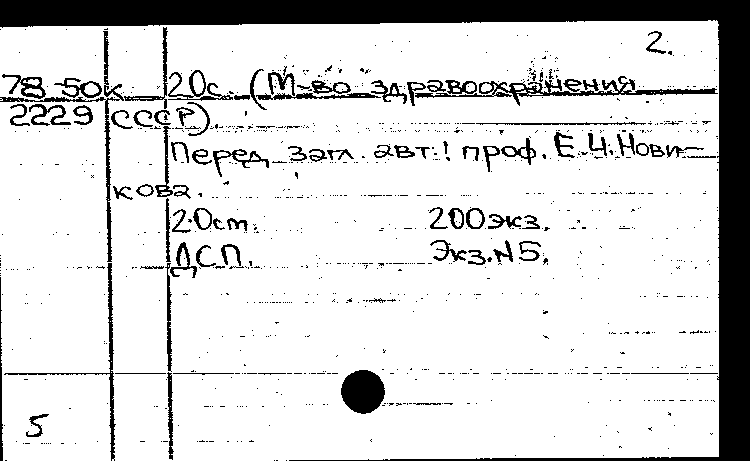 2.
78-50к 20с. (М-во здравоохранения
2229 СССР).
Перед загл. авт.: проф. Е.Ч. Нови-
кова.
20см. 200экз.
ДСП. Экз.N5.
5